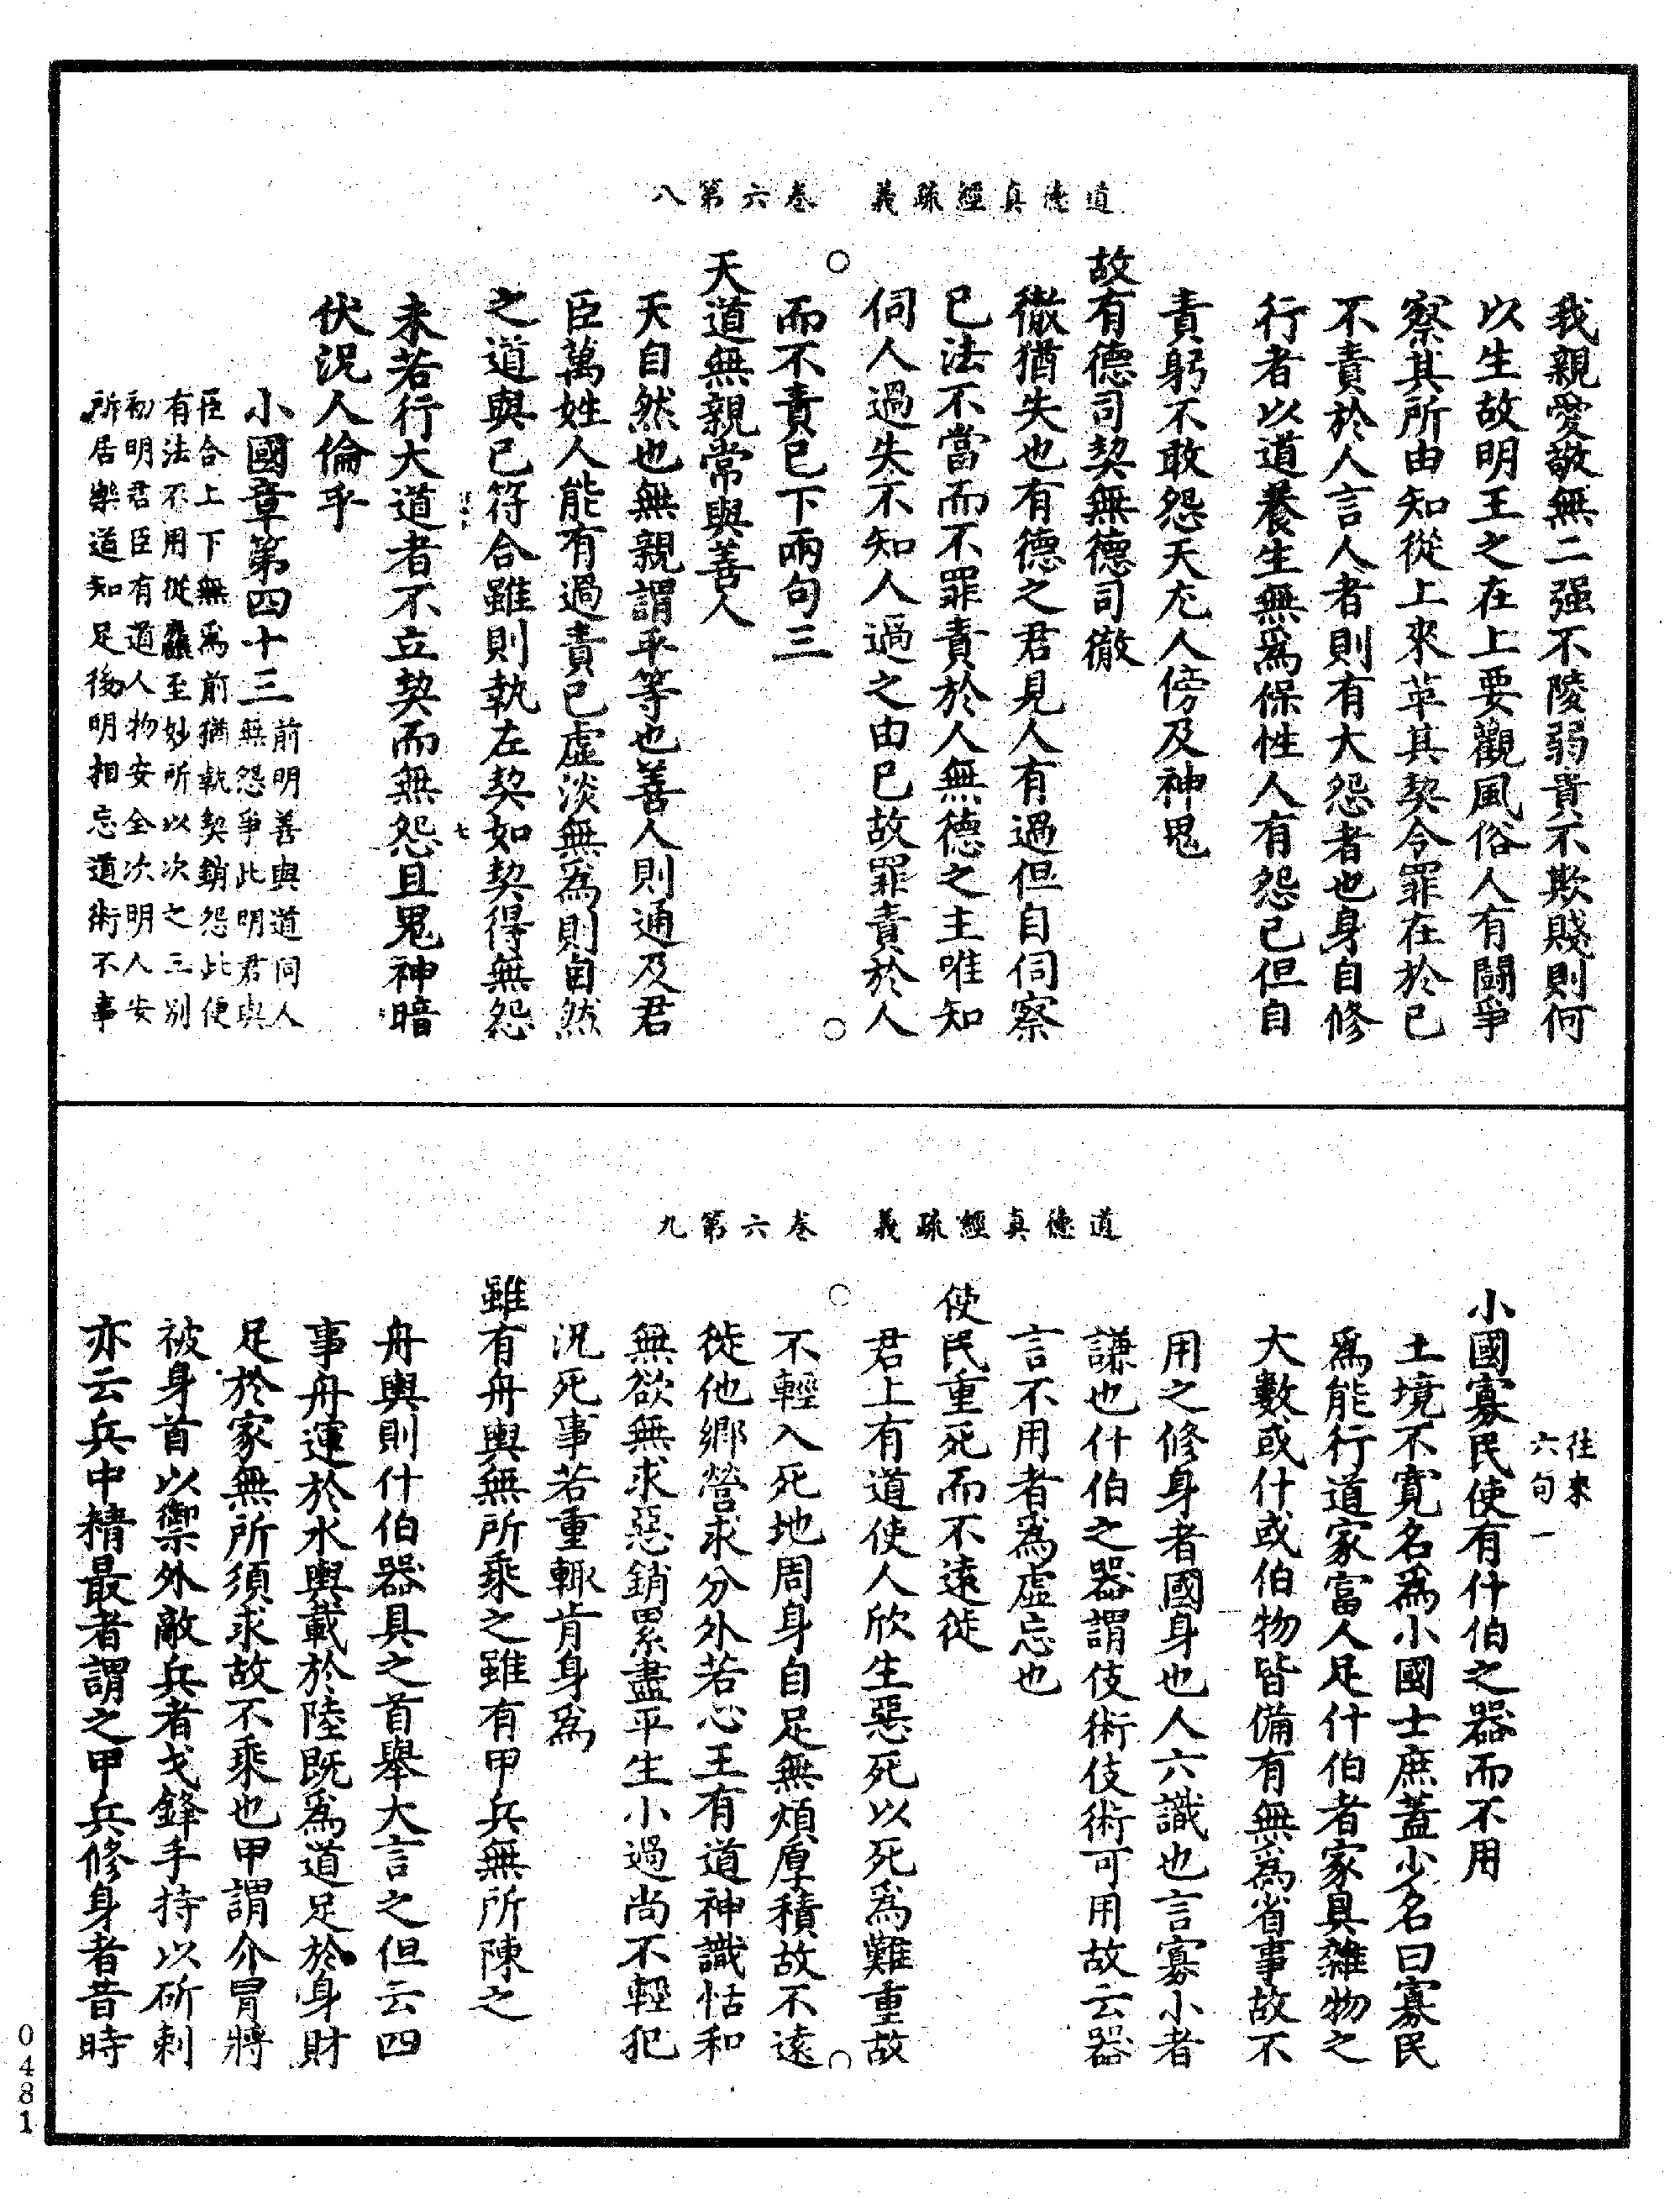 道德真經疏義　卷六第八
我親愛敬無二强不陵弱貴不欺賤則何
以生故明王之在上要觀風俗人有鬪爭
察其所由知從上來革其契令罪在於己
不責於人言人者則有大怨者也身自修
行者以道養生無爲保性人有怨己但自
責躬不敢怨天尤人傍及神鬼
故有德司契無德司徹
徹猶失也有德之君見人有過但自伺察
已法不當而不罪責於人無德之主唯知
伺人過失不知人過之由已故罪責於人
而不責已下兩句三
天道無親常與善人
天自然也無親謂平等也善人則通及君
臣萬姓人能有過責已虛淡無爲則自然
之道與已符合雖則執左契如契得無怨
七
未若行大道者不立契而無怨且鬼神暗
伏況人倫乎
小國章第四十三
前明善與道同人
無怨爭此明君與
臣合上下無爲前猶執契銷怨此便
有法不用從麤至妙所以次之三别
初明君臣有道人物安全次明人安
所居樂道知足後明相忘道術不事
道德真經疏義　卷六第九
往來
六句一
小國寡民使有什伯之器而不用
土境不寬名爲小國士庶蓋少名曰寡民
爲能行道家富人足什伯者家具雜物之
大數或什或伯物皆備有無爲省事故不
用之修身者國身也人六識也言寡小者
謙也什伯之器謂伎術伎術可用故云器
言不用者爲虛忘也
使民重死而不遠徙
君上有道使人欣生惡死以死爲難重故
不輕入死地周身自足無煩厚積故不遠
徙他鄉營求分外若心王有道神識恬和
無欲無求惡銷累盡平生小過尚不輕犯
況死事若重輙肯身爲
雖有舟輿無所乘之雖有甲兵無所陳之
舟輿則什伯器具之首舉大言之但云四
事舟運於水輿載於陸既爲道足於身財
足於家無所須求故不乘也甲謂介冑將
被身首以禦外敵兵者戈鋒手持以斫刺
亦云兵中精最者謂之甲兵修身者昔時
0481